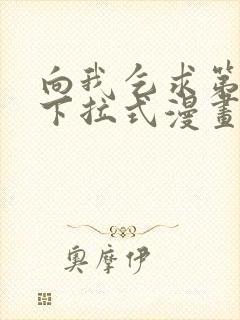 向我乞求第
下拉式漫畫
奧摩伊